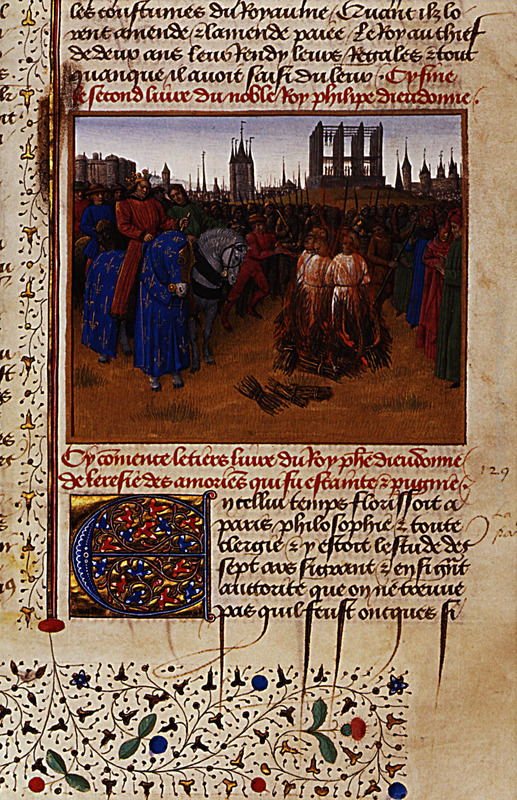 les coustumes du Royaume. Quant ilz lo
rent amende, & lamende paiee. Le Roy au chief
de deux ans leur Rendy leurs Regales & tout
quanque il auoit saisi du leur. Cy fine
le second liure du noble Roy phelipe dieudonne.
Cy comence le tiers liure du Roy phe dieudonne
de leresie des amories qui fu estainte & pugnie.
En cellui temps florissoit a
paris philosophie & toute
clergie, & y estoit lestude des
sept ars si grant & en si grant
auctorite que on ne treuue
pas quil feust oncques si
129